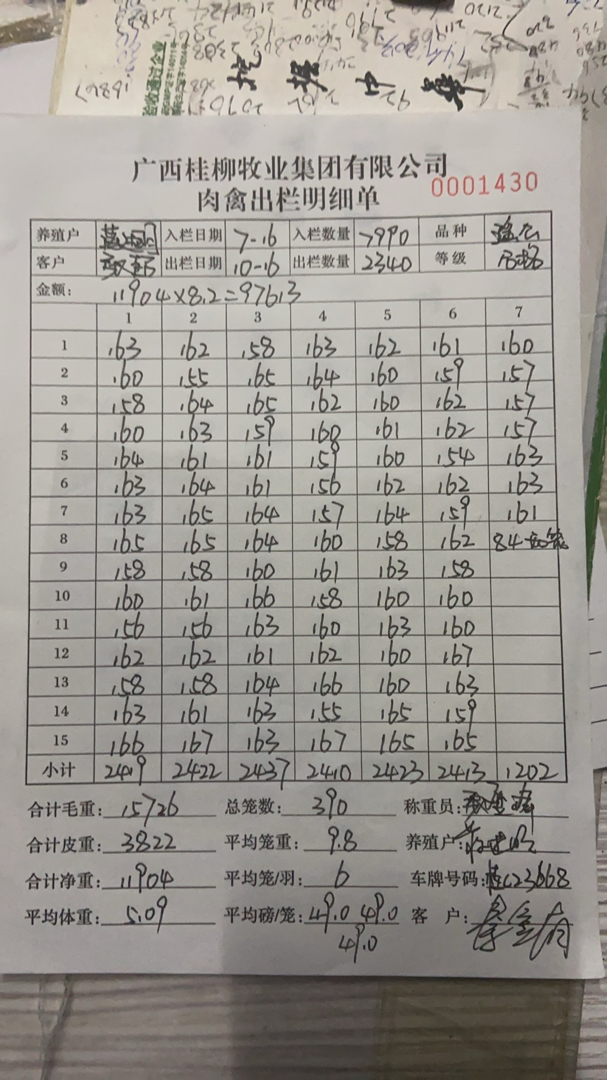 广西桂柳牧业集团有限公司
肉禽出栏明细单 0001430
养殖户 入栏日期 7-16 入栏数量 7990 品种
客户 出栏日期 10-16 出栏数量 2340 等级
金额: 11904×8.2=97613
1 2 3 4 5 6 7
1 163 162 158 163 162 161 160
2 160 155 165 164 160 159 157
3 158 164 165 162 160 162 157
4 160 163 159 160 161 162 157
5 164 161 161 159 160 154 163
6 163 164 161 156 162 162 163
7 163 165 164 157 164 159 161
8 165 165 164 160 158 162 84
9 158 158 160 161 163 158
10 160 161 166 158 160 160
11 156 156 163 160 163 160
12 162 162 161 162 160 167
13 158 158 164 166 160 163
14 163 161 163 155 165 159
15 166 167 163 167 165 165
小计 2419 2422 2437 2410 2423 2413 1202
合计毛重: 15726 总笼数: 390 称重员:
合计皮重: 3822 平均笼重: 9.8 养殖户:
合计净重: 11904 平均笼/羽: 6 车牌号码: 桂L23668
平均体重: 5.09 平均磅/笼: 49.0 49.0 客户:
49.0